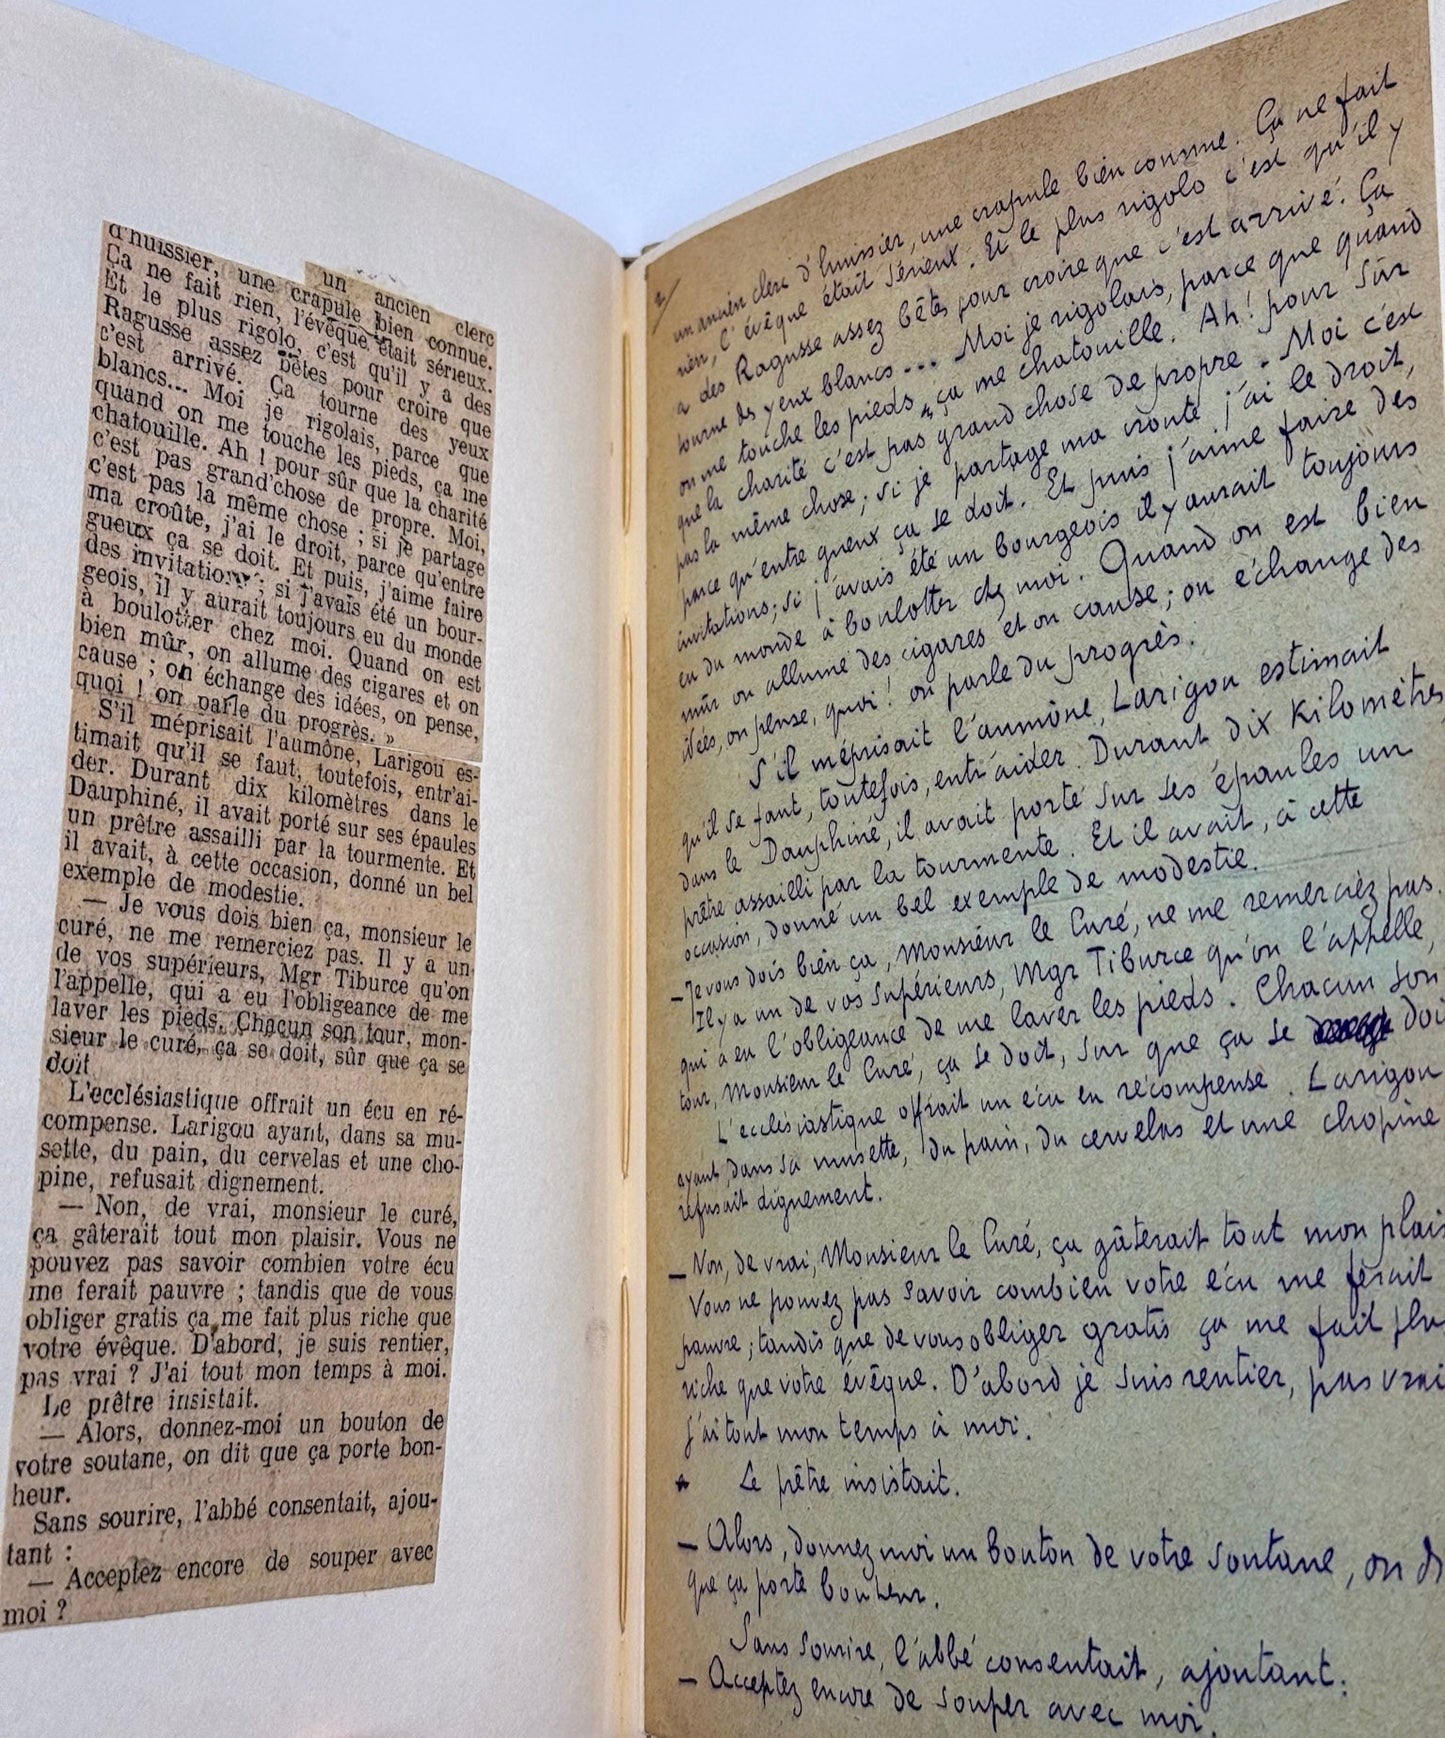 un ancien clerc
d'huissier, une crapule bien connue.
Ça ne fait rien, l'évêque était sérieux.
Et le plus rigolo, c'est qu'il y a des
Ragusse assez bêtes pour croire que
c'est arrivé. Ça tourne des yeux
blancs... Moi je rigolais, parce que
quand on me touche les pieds, ça me
chatouille. Ah ! pour sûr que la charité
c'est pas grand'chose de propre. Moi,
c'est pas la même chose ; si je partage
ma croûte, j'ai le droit, parce qu'entre
gueux ça se doit. Et puis, j'aime faire
des invitations ; si j'avais été un bour-
geois, il y aurait toujours eu du monde
à boulotter chez moi. Quand on est
bien mûr, on allume des cigares et on
cause ; on échange des idées, on pense,
quoi ! on parle du progrès. »
S'il méprisait l'aumône, Larigou es-
timait qu'il se faut, toutefois, entr'ai-
der. Durant dix kilomètres dans le
Dauphiné, il avait porté sur ses épaules
un prêtre assailli par la tourmente. Et
il avait, à cette occasion, donné un bel
exemple de modestie.
— Je vous dois bien ça, monsieur le
curé, ne me remerciez pas. Il y a un
de vos supérieurs, Mgr Tiburce qu'on
l'appelle, qui a eu l'obligeance de me
laver les pieds. Chacun son tour, mon-
sieur le curé, ça se doit, sûr que ça se
doit
L'ecclésiastique offrait un écu en ré-
compense. Larigou ayant, dans sa mu-
sette, du pain, du cervelas et une cho-
pine, refusait dignement.
— Non, de vrai, monsieur le curé,
ça gâterait tout mon plaisir. Vous ne
pouvez pas savoir combien votre écu
me ferait pauvre ; tandis que de vous
obliger gratis ça me fait plus riche que
votre évêque. D'abord, je suis rentier,
pas vrai ? J'ai tout mon temps à moi.
Le prêtre insistait.
— Alors, donnez-moi un bouton de
votre soutane, on dit que ça porte bon-
heur.
Sans sourire, l'abbé consentait, ajou-
tant :
— Acceptez encore de souper avec
moi ?
un ancien clerc d'huissier, une crapule bien connue. Ça ne fait
rien, l'évêque était sérieux. Et le plus rigolo c'est qu'il y
a des Ragusse assez bêtes pour croire que c'est arrivé. Ça
tourne des yeux blancs... Moi je rigolais, parce que quand
on me touche les pieds, ça me chatouille. Ah! pour sûr
que la charité c'est pas grand chose de propre. Moi c'est
pas la même chose; si je partage ma croute j'ai le droit,
parce qu'entre gueux ça se doit. Et puis j'aime faire des
invitations; si j'avais été un bourgeois il y aurait toujours
eu du monde à boulotter chez moi. Quand on est bien
mûr on allume des cigares et on cause; on échange des
idées, on pense, quoi! on parle du progrès.
S'il méprisait l'aumône, Larigou estimait
qu'il se faut, toutefois, entr'aider. Durant dix kilomètres
dans le Dauphiné, il avait porté sur ses épaules un
prêtre assailli par la tourmente. Et il avait, à cette
occasion, donné un bel exemple de modestie.
— Je vous dois bien ça, Monsieur le Curé, ne me remerciez pas.
Il y a un de vos supérieurs, Mgr Tiburce qu'on l'appelle,
qui a eu l'obligeance de me laver les pieds. Chacun son
tour, Monsieur le Curé, ça se doit, sur que ça se doi
L'ecclésiastique offrait un écu en récompense. Larigou
ayant, dans sa musette, du pain, du cervelas et une chopine
refusait dignement.
— Non, de vrai, Monsieur le Curé, ça gâterait tout mon plais
Vous ne pouvez pas savoir combien votre écu me ferait
pauvre; tandis que de vous obliger gratis ça me fait plu
riche que votre évêque. D'abord je suis rentier, pas vrai
J'ai tout mon temps à moi.
Le prêtre insistait.
— Alors, donnez moi un bouton de votre soutane, on di
que ça porte bonheur.
Sans sourire, l'abbé consentait, ajoutant:
— Acceptez encore de souper avec moi.